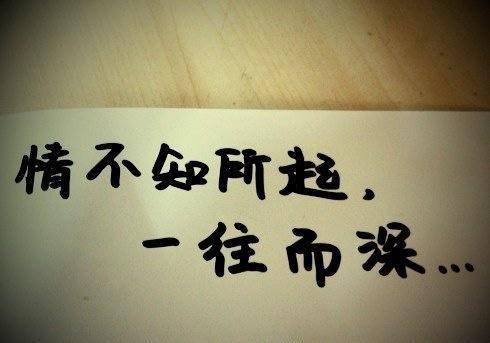 情不知所起，
一往而深...